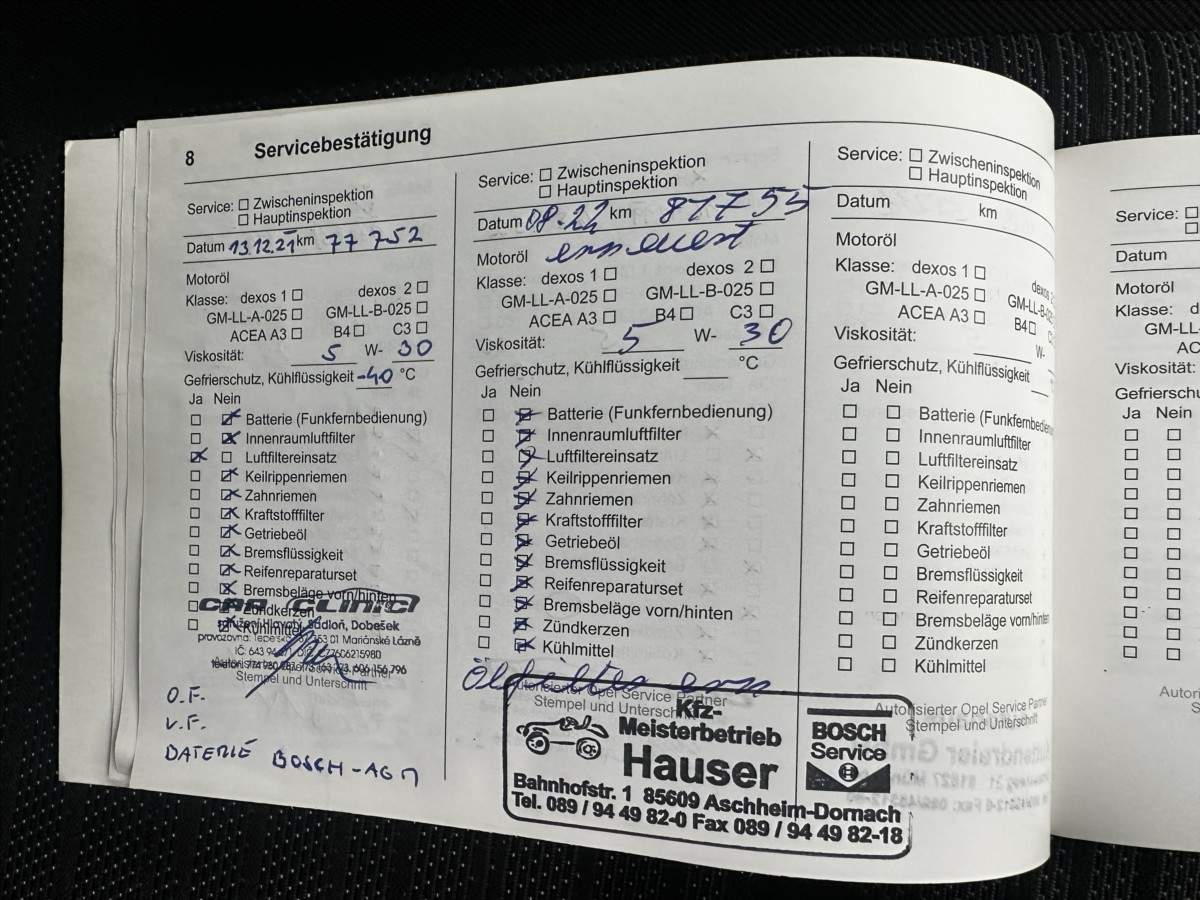 8 Servicebestätigung
Service: ☐ Zwischeninspektion
☐ Hauptinspektion
Datum 13.12.21 km 77 752
Motoröl
Klasse: dexos 1 ☐ dexos 2 ☐
GM-LL-A-025 ☐ GM-LL-B-025 ☐
ACEA A3 ☐ B4 ☐ C3 ☐
Viskosität: 5 W- 30
Gefrierschutz, Kühlflüssigkeit -40 °C
Ja Nein
☐ ☒ Batterie (Funkfernbedienung)
☐ ☒ Innenraumluftfilter
☒ ☐ Luftfiltereinsatz
☐ ☒ Keilrippenriemen
☐ ☒ Zahnriemen
☐ ☒ Kraftstofffilter
☐ ☒ Getriebeöl
☐ ☒ Bremsflüssigkeit
☐ ☒ Reifenreparaturset
☐ ☒ Bremsbeläge vorn/hinten
☐ ☒ Zündkerzen
☐ ☒ Kühlmittel
CAR CLINIC
Hlavatý, Sudloň, Dobešek
provozovna: 353 01 Mariánské Lázně
606 156 796
Stempel und Unterschrift
O.F.
V.F.
BATERIÉ BOSCH - AGM
Service: ☐ Zwischeninspektion
☐ Hauptinspektion
Datum 08.22 km 81755
Motoröl erneuert
Klasse: dexos 1 ☐ dexos 2 ☐
GM-LL-A-025 ☐ GM-LL-B-025 ☐
ACEA A3 ☐ B4 ☐ C3 ☐
Viskosität: 5 W- 30
Gefrierschutz, Kühlflüssigkeit °C
Ja Nein
☐ ☒ Batterie (Funkfernbedienung)
☐ ☒ Innenraumluftfilter
☐ ☒ Luftfiltereinsatz
☐ ☒ Keilrippenriemen
☐ ☒ Zahnriemen
☐ ☒ Kraftstofffilter
☐ ☒ Getriebeöl
☐ ☒ Bremsflüssigkeit
☐ ☒ Reifenreparaturset
☐ ☒ Bremsbeläge vorn/hinten
☐ ☒ Zündkerzen
☐ ☒ Kühlmittel
Ölfilter ern
Autorisierter Opel Service Partner
Stempel und Unterschrift
Kfz-
Meisterbetrieb
Hauser
BOSCH
Service
Bahnhofstr. 1 85609 Aschheim-Dornach
Tel. 089 / 94 49 82-0 Fax 089 / 94 49 82-18
Service: ☐ Zwischeninspektion
☐ Hauptinspektion
Datum km
Motoröl
Klasse: dexos 1 ☐ dexos
GM-LL-A-025 ☐ GM-LL-B-02
ACEA A3 ☐ B4 ☐ C
Viskosität: W-
Gefrierschutz, Kühlflüssigkeit
Ja Nein
☐ ☐ Batterie (Funkfernbedie
☐ ☐ Innenraumluftfilter
☐ ☐ Luftfiltereinsatz
☐ ☐ Keilrippenriemen
☐ ☐ Zahnriemen
☐ ☐ Kraftstofffilter
☐ ☐ Getriebeöl
☐ ☐ Bremsflüssigkeit
☐ ☐ Reifenreparaturset
☐ ☐ Bremsbeläge vorn/hinten
☐ ☐ Zündkerzen
☐ ☐ Kühlmittel
Autorisierter Opel Service Partner
Stempel und Unterschrift
Service: ☐
☐
Datum
Motoröl
Klasse: d
GM-LL
AC
Viskosität:
Gefrierschu
Ja Nein
Autoris
S